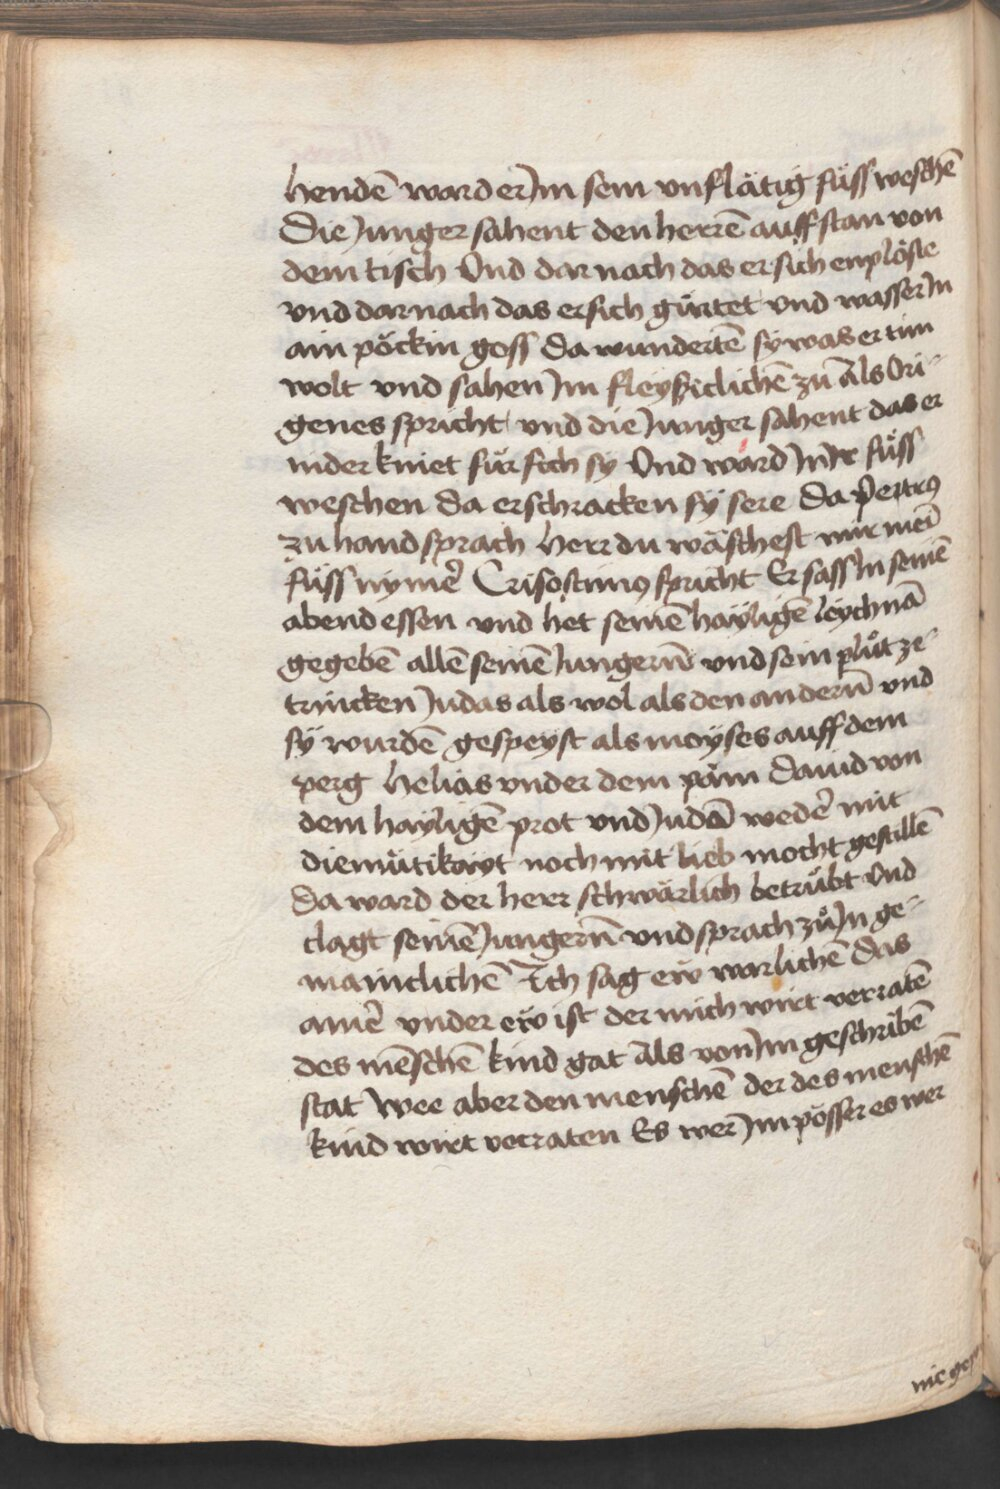 hendē ward er Jm sein vnflätig füss weschē
Die Junger sahent den herrē auff stan von
dem tisch Vnd dar nach das er sich enplöste
vnd darnach das er sich gürtet vnd wasser Jn
ain pöckin goss da wundertē sy was er tun
wolt vnd sahen Jm fleyssiclichē zu Als Ori-
genes spricht vnd die Junger sahent das er
nider kniet für sich sy Vnd ward Jn Jr füss
weschen da erschracken sy sere Da Petrus
zu hand sprach herr du wäschest mir mei
füss nymer Crisostimus spricht Er sass Jn seinē
abend essen vnd het seinē hayligē leychnā
gegebē allē seinē Jungern vnd sein plůt ze
trincken Judas als wol als den andern vnd
sy wurdē gespeyst als moyses auff dem
perg helias vnder dem pam Dauid von
dem hayligē prot vnd Judā wedē mit
diemütikayt noch mit lieb mocht gestillē
Da ward der herr schwärlich betrübt Vnd
clagt seinē Jungern vnd sprach zů Jn ge-
mainclichē Ich sag ew warlichē Das
ainē vnder ew ist der mich wirt verratē
des mēschē kind gat Als von Jm geschribē
stat Wee aber den menschē der des menschē
kind wirt verraten Es wer Jm pösser es wer
nie ge